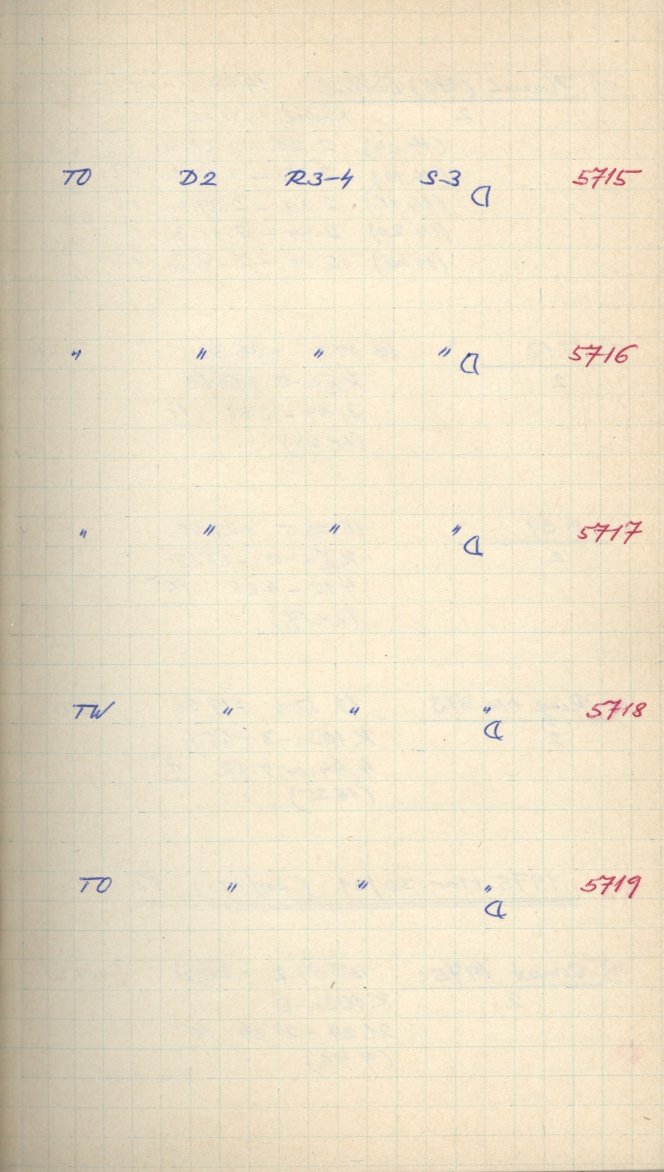 TO D2 R3-4 S-3 D 5715
" " " " D 5716
" " " " D 5717
TW " " " D 5718
TO " " " D 5719